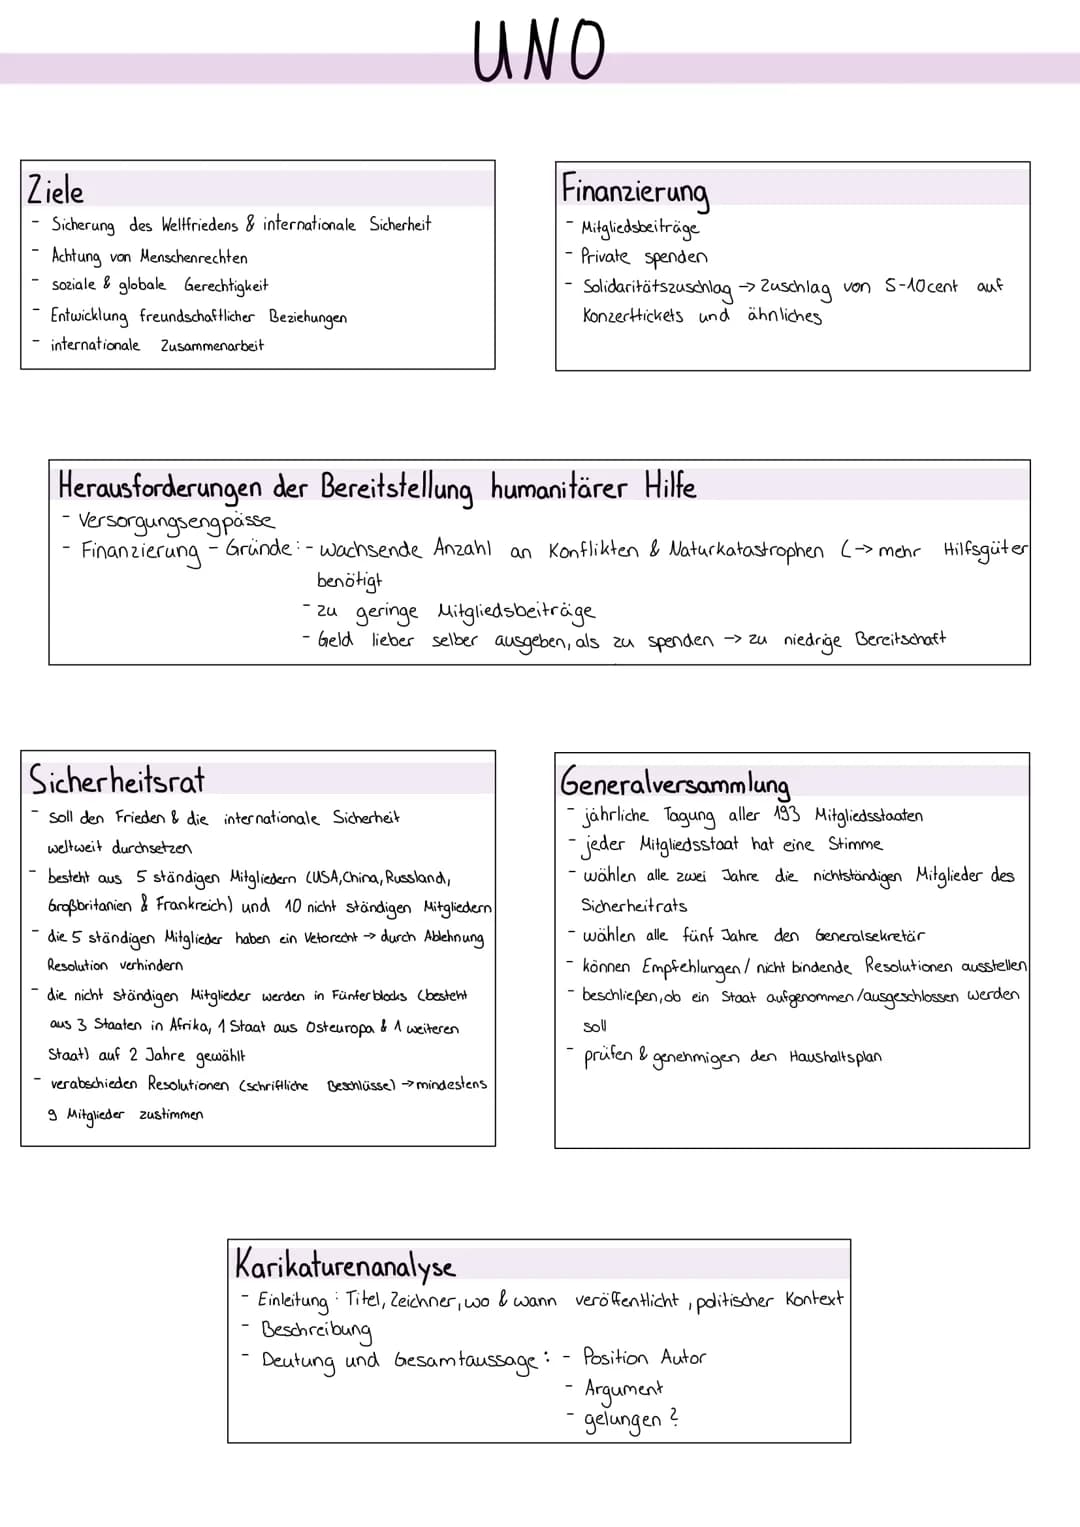 UNO
Ziele
- Sicherung des Weltfriedens & internationale Sicherheit
- Achtung von Menschenrechten
- soziale & globale Gerechtigkeit
- Entwicklung freundschaftlicher Beziehungen
- internationale Zusammenarbeit
Finanzierung
- Mitgliedsbeiträge
- Private spenden
- Solidaritätszuschlag → Zuschlag von 5-10cent auf
Konzerttickets und ähnliches
Herausforderungen der Bereitstellung humanitärer Hilfe
- Versorgungsengpässe
- Finanzierung - Gründe: - wachsende Anzahl an Konflikten & Naturkatastrophen (→ mehr Hilfsgüter
benötigt
- zu geringe Mitgliedsbeiträge
- Geld lieber selber ausgeben, als zu spenden → zu niedrige Bereitschaft
Sicherheitsrat
- soll den Frieden & die internationale Sicherheit
weltweit durchsetzen
- besteht aus 5 ständigen Mitgliedern (USA, China, Russland,
Großbritanien & Frankreich) und 10 nicht ständigen Mitgliedern
- die 5 ständigen Mitglieder haben ein Vetorecht → durch Ablehnung
Resolution verhindern
- die nicht ständigen Mitglieder werden in Fünferblocks (besteht
aus 3 Staaten in Afrika, 1 Staat aus Osteuropa & 1 weiteren
Staat) auf 2 Jahre gewählt
- verabschieden Resolutionen (schriftliche Beschlüsse) → mindestens
9 Mitglieder zustimmen
Generalversammlung
- jährliche Tagung aller 193 Mitgliedsstaaten
- jeder Mitgliedsstaat hat eine Stimme
- wählen alle zwei Jahre die nichtständigen Mitglieder des
Sicherheitrats
- wählen alle fünf Jahre den Generalsekretär
- können Empfehlungen / nicht bindende Resolutionen ausstellen
- beschließen, ob ein Staat aufgenommen/ausgeschlossen werden
soll
- prüfen & genehmigen den Haushaltsplan
Karikaturenanalyse
- Einleitung: Titel, Zeichner, wo & wann veröffentlicht, politischer Kontext
- Beschreibung
- Deutung und Gesamtaussage: - Position Autor
- Argument
- gelungen?